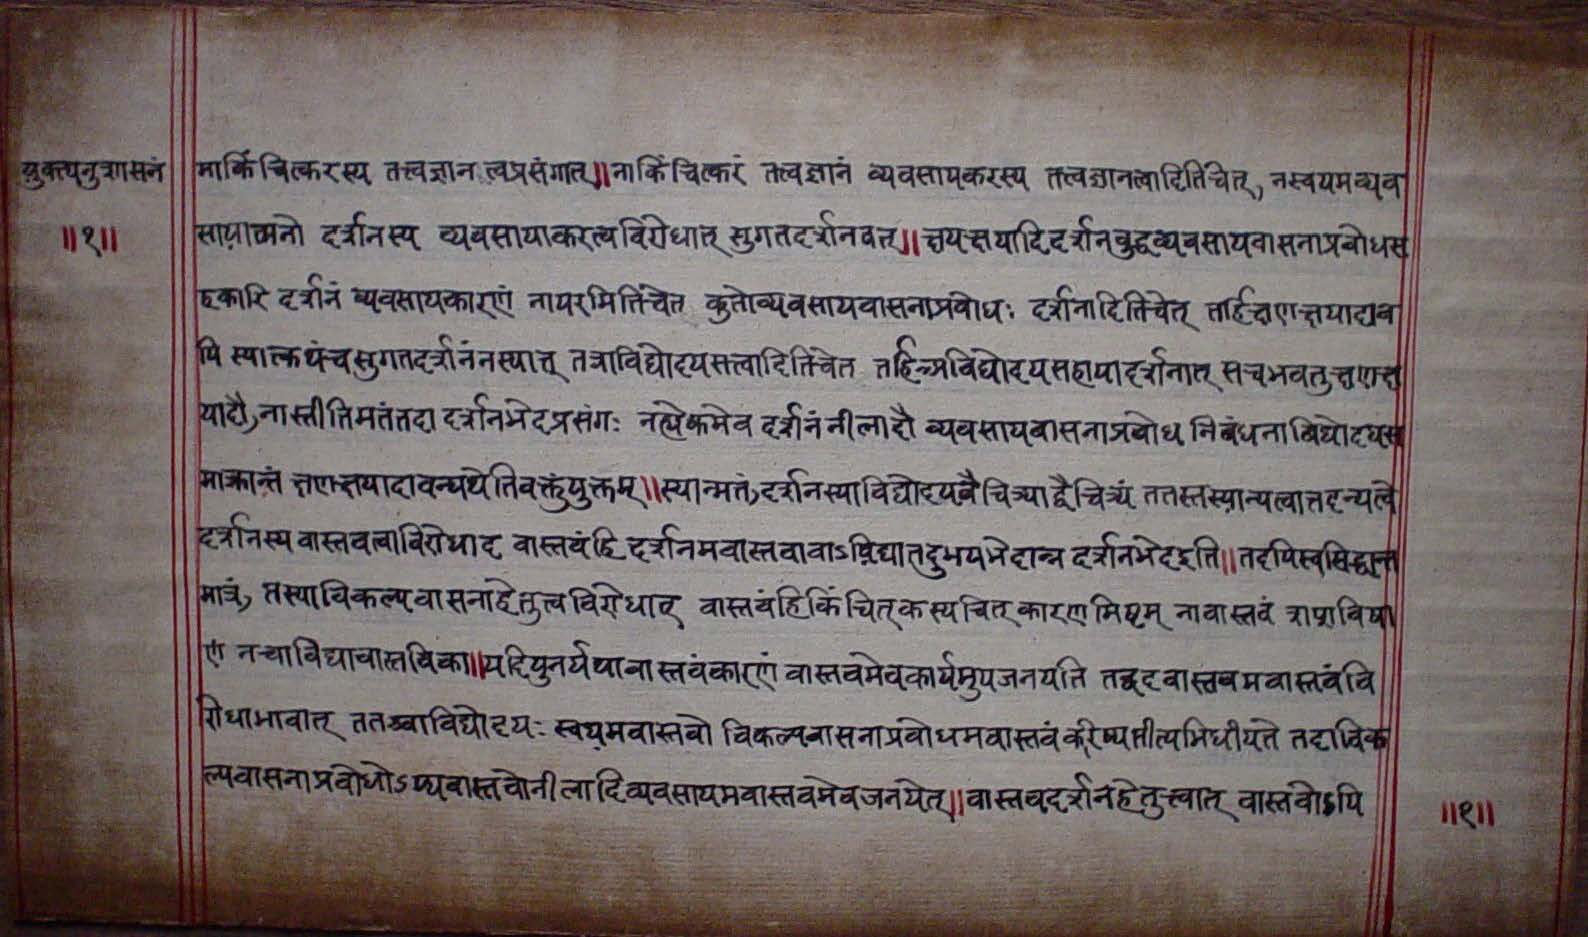 युक्त्यनुशासनं
॥१॥
माकिंचित्करस्य तत्त्वज्ञानत्वप्रसंगात्॥नाकिंचित्करं तत्त्वज्ञानं व्यवसायकरस्य तत्त्वज्ञानत्वादितिचेत्, नस्वयमव्यव
सायात्मनो दर्शनस्य व्यवसायाकरत्यविरोधात् सुगतदर्शनवत्॥क्षयक्षयादिदर्शनबुद्धव्यवसायवासनाप्रबोधस
हकारि दर्शनं व्यवसायकारणं नापरमितिचेत कुतोव्यवसायवासनाप्रबोधः दर्शनादितिचेत् तर्हिक्षणक्षयादाव
पि स्यात्कथंचसुगतदर्शनंनस्यात् तत्राविद्योदयसत्वादितिचेत तर्हिअविद्योदयसहायादर्शनात् सचभवतुक्षणक्ष
यादौ,नास्तीतिमतंतदा दर्शनभेदप्रसंगः नह्येकमेव दर्शनंनीलादौ व्यवसायवासनाप्रबोध निबंधनाविद्योदयस
माक्रान्तं क्षणक्षयादावन्यथेतिवक्तुंयुक्तम्॥स्यान्मतं,दर्शनस्याविद्योदयवैचित्र्याद्वैचित्र्यं ततस्तस्यान्यत्वात्तदन्यत्वे
दर्शनस्य वास्तवत्वाविरोधाद वास्तवंहि दर्शनमवास्तवावाऽविद्यातदुभयभेदान्न दर्शनभेदइति॥तदपिस्वसिद्धान्त
मात्रं, तस्याविकल्पवासनाहेतुत्वविरोधात् वास्तवंहिकिंचित्कस्यचित्कारणमिष्टम् नावास्तवं शशविषा
णं नचाविद्यावास्तविका॥यदिपुनर्यथावास्तवंकारणं वास्तवमेवकार्यमुपजनयति तद्वदवास्तवमवास्तवंवि
रोधाभावात् ततश्चाविद्योदयः स्वयमवास्तवो विकल्पवासनाप्रबोधमवास्तवंकरिष्यतीत्यभिधीयते तदाविक
ल्पवासनाप्रबोधोऽप्यवास्तवोनीलादिव्यवसायमवास्तवमेवजनयेत्॥वास्तवदर्शनहेतुत्वात् वास्तवोऽपि
॥१॥